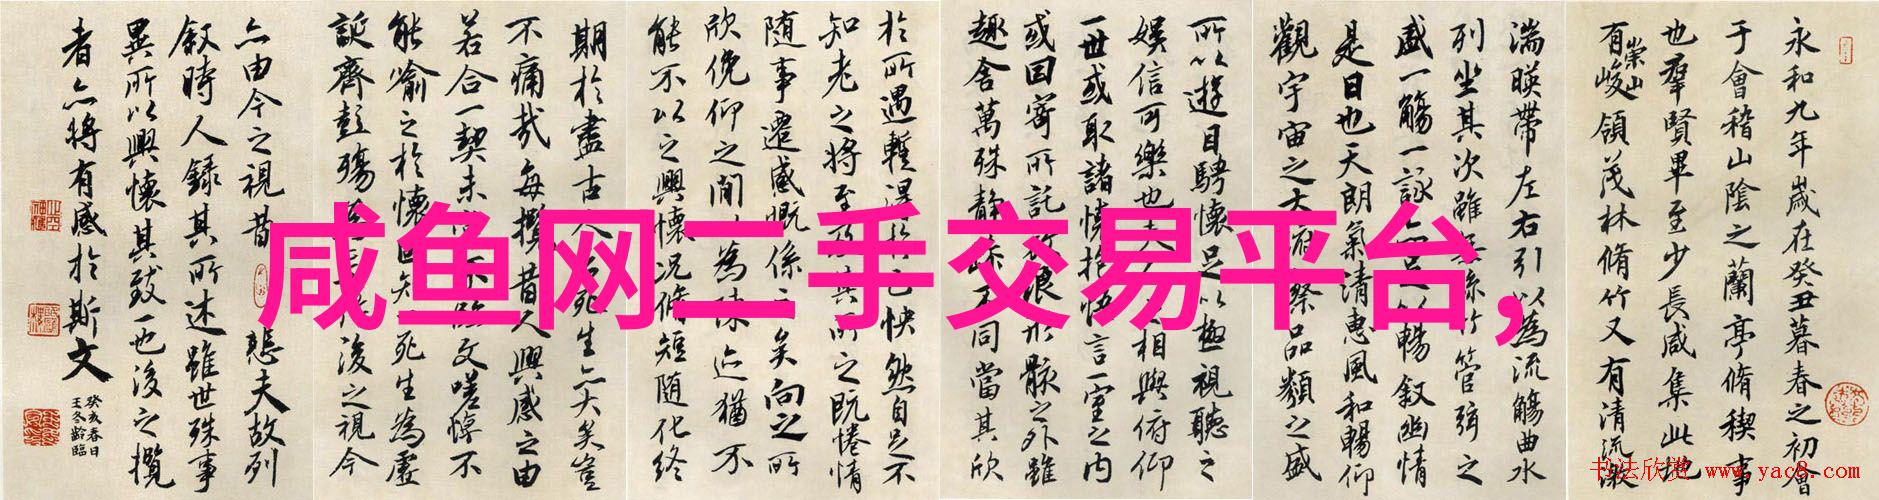 咸鱼网二手交易平台，
永和九年歲在癸丑暮春之初會
于會稽山陰之蘭亭脩稧事
也羣賢畢至少長咸集此地
有崇山峻領茂林脩竹又有清流激
湍暎帶左右引以為流觴曲水
列坐其次雖無絲竹管弦之
盛一觴一詠亦足以暢敘幽情
是日也天朗氣清惠風和暢仰
觀宇宙之大俯察品類之盛
所以遊目騁懷足以極視聽之
娛信可樂也夫人之相與俯仰
一世或取諸懷抱悟言一室之內
或因寄所託放浪形骸之外雖
趣舍萬殊靜躁不同當其欣
於所遇暫得於己快然自足不
知老之將至及其所之既惓情
随事遷感慨係之矣向之所
欣俛仰之閒以為陳迹猶不
能不以之興懷況脩短随化終
期於盡古人云死生亦大矣豈
不痛哉每攬昔人興感之由
若合一契未嘗不臨文嗟悼不
能喻之於懷固知一死生為虛
誕齊彭殤為妄作後之視今
亦由今之視昔悲夫故列
敘時人錄其所述雖世殊事
異所以興懷其致一也後之攬
者亦將有感於斯文
癸亥春日
王冬齡臨
书法欣赏 www.yac8.com